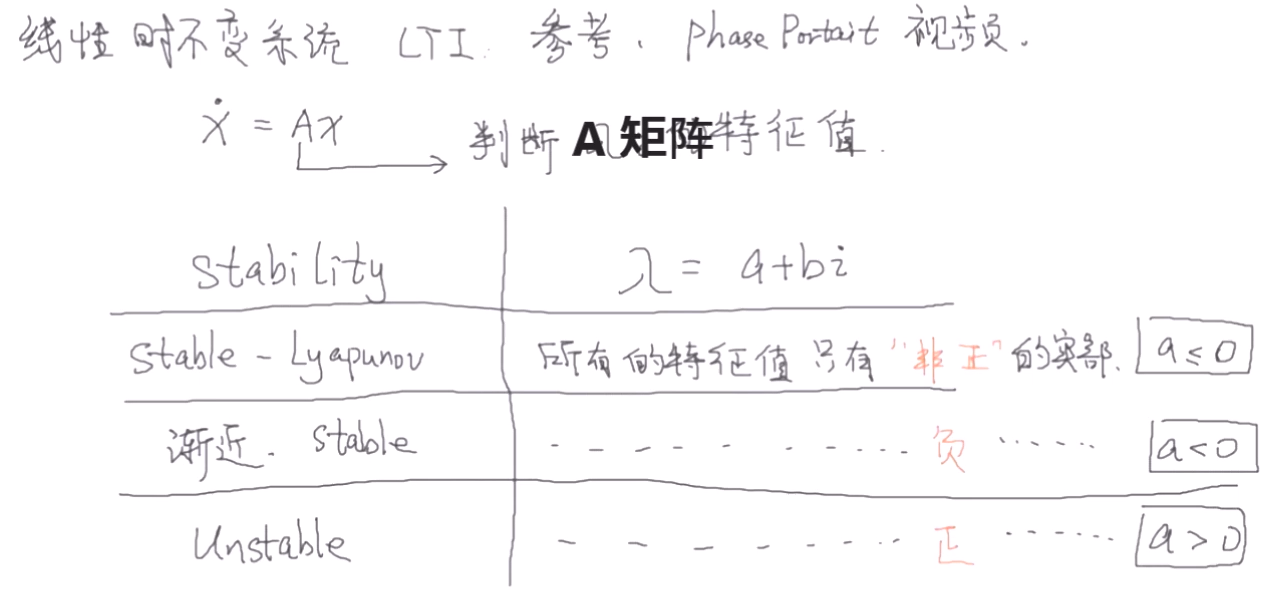 线性时不变系统 LTI. 参考. Phase Portait 视频.
ẋ = Ax
判断 A 矩阵 特征值.
Stability λ = a+bi
Stable - Lyapunov 所有的特征值只有 "非正" 的实部. a ≤ 0
渐近. Stable - - - - - - - - ···· 负 ······ a < 0
Unstable - - - - - - - ···· 正 ······ a > 0